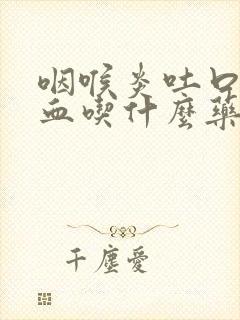 咽喉炎吐口
血喫什麼藥
千塵愛